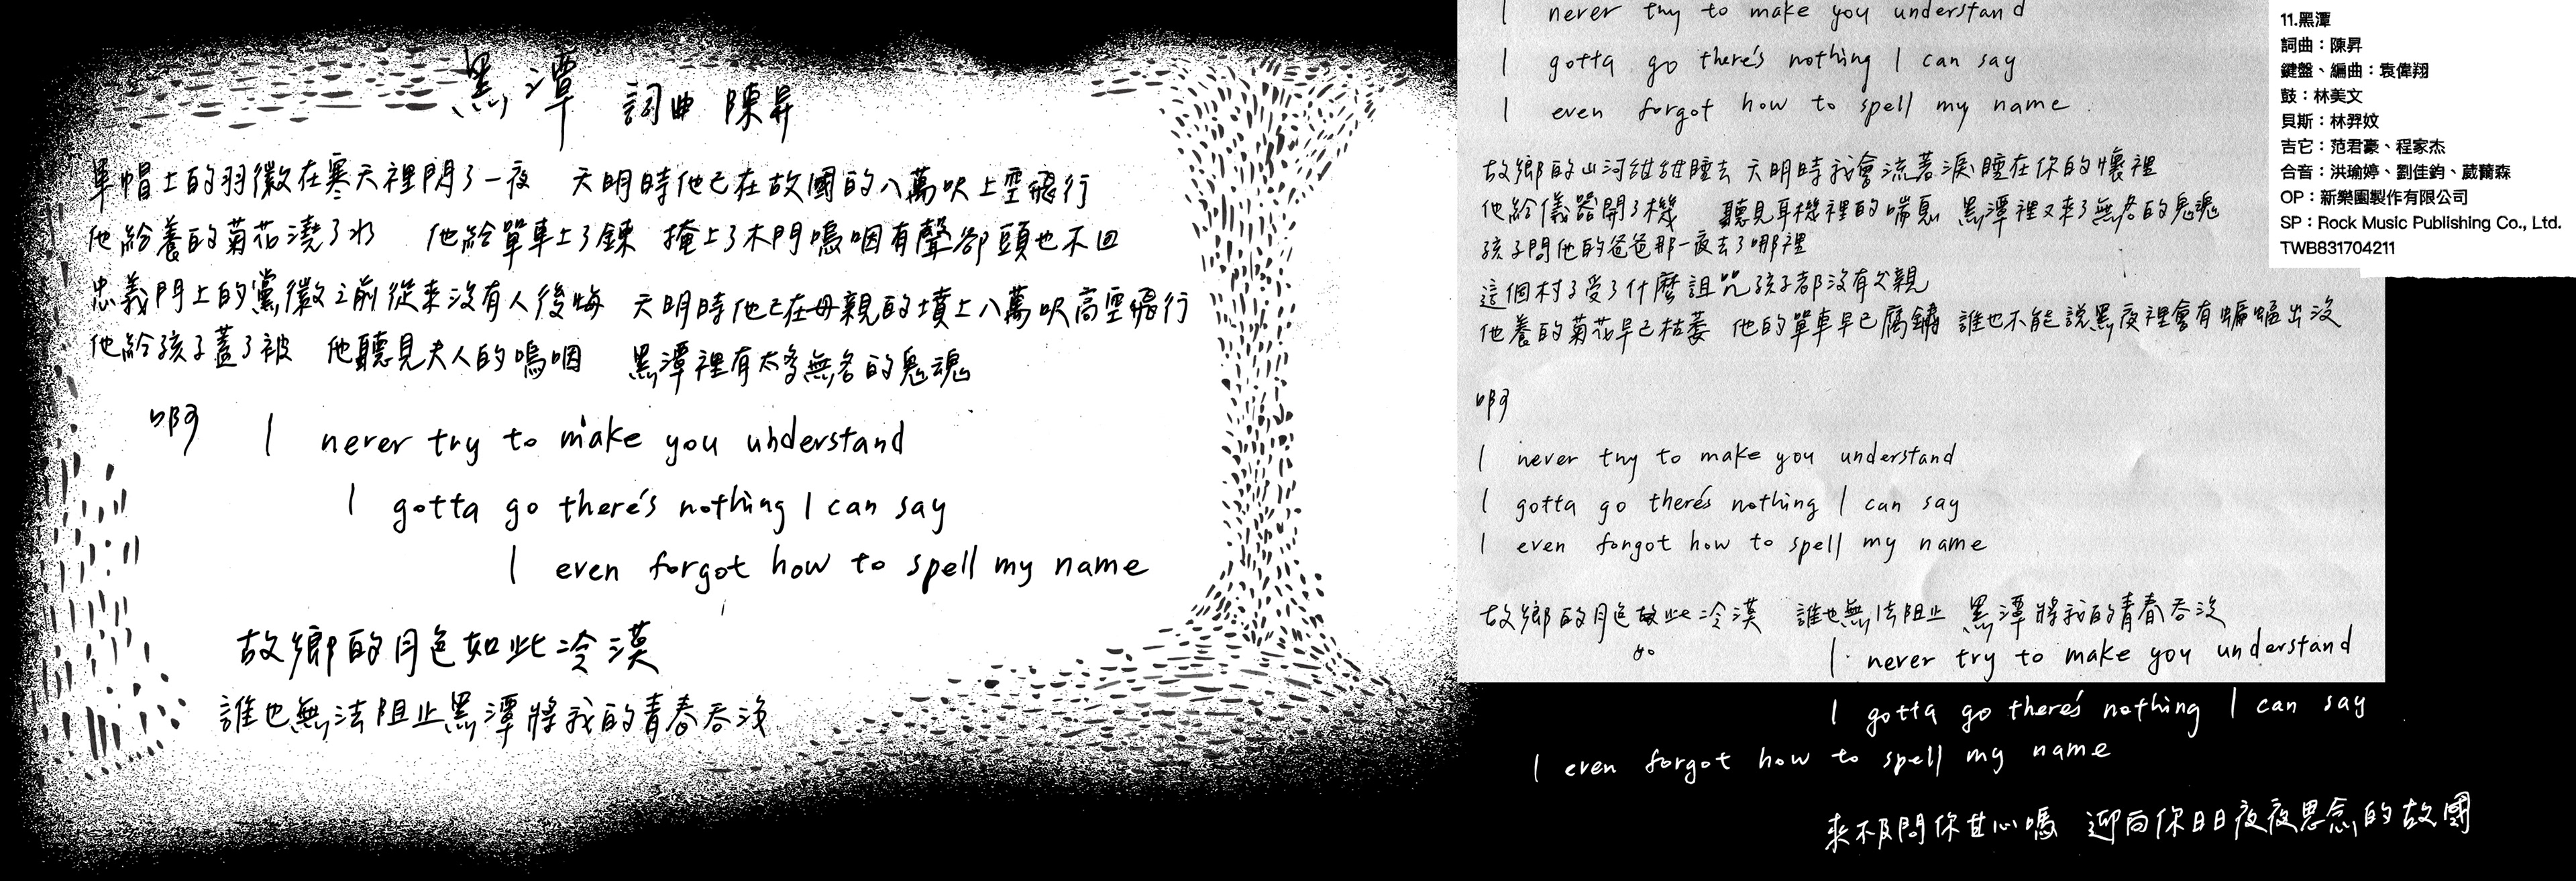 黑潭
詞曲 陳昇
軍帽上的羽徽在寒天裡閃了一夜 天明時他已在故國的八萬呎上空飛行
他給養的菊花澆了水 他給單車上了鍊 掩上了木門嗚咽有聲卻頭也不回
忠義門上的黨徽之前從來沒有人後悔 天明時他已在母親的墳上八萬呎高空飛行
他給孩子蓋了被 他聽見夫人的嗚咽 黑潭裡有太多無名的鬼魂
啊 I never try to make you understand
I gotta go there's nothing I can say
I even forgot how to spell my name
故鄉的月色如此冷漠
誰也無法阻止黑潭將我的青春吞沒
I never try to make you understand
I gotta go there's nothing I can say
I even forgot how to spell my name
故鄉的山河甜甜睡去 天明時我會流著淚睡在你的懷裡
他給儀器開了機 聽見耳機裡的喘息 黑潭裡又來了無名的鬼魂
孩子問他的爸爸那一夜去了哪裡
這個村子受了什麼詛咒孩子都沒有父親
他養的菊花早已枯萎 他的單車早已腐鏽 誰也不能說黑夜裡會有蝙蝠出沒
啊
I never try to make you understand
I gotta go there's nothing I can say
I even forgot how to spell my name
故鄉的月色如此冷漠 誰也無法阻止 黑潭將我的青春吞沒
I never try to make you understand
I gotta go there's nothing I can say
I even forgot how to spell my name
來不及問你甘心嗎 迎向你日日夜夜思念的故國
11.黑潭
詞曲：陳昇
鍵盤、編曲：袁偉翔
鼓：林美文
貝斯：林羿妏
吉它：范君豪、程家杰
合音：洪瑜婷、劉佳鈞、葳爾森
OP：新樂園製作有限公司
SP：Rock Music Publishing Co., Ltd.
TWB831704211